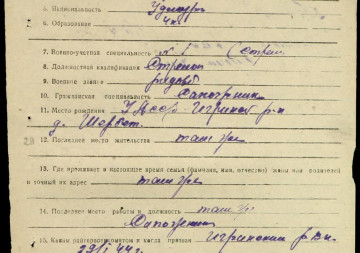 5. Национальность Удмурт
6. Образование 4 кл
7. Военно-учетная специальность № 1 (Стрел
8. Должностная квалификация Стрелок
9. Военное звание рядовой
10. Гражданская специальность Сапожник
11. Место рождения УАССР Игринск р-н
д.
12. Последнее место жительства там же
13. Где проживает в настоящее время семья (фамилия, имя, отчество) жены или родителей
и точный их адрес там же
14. Последнее место работы и должность там же
Сапожник
15. Каким райгорвоенкоматом и когда призван Игринским р.в.
29/I 44 г.